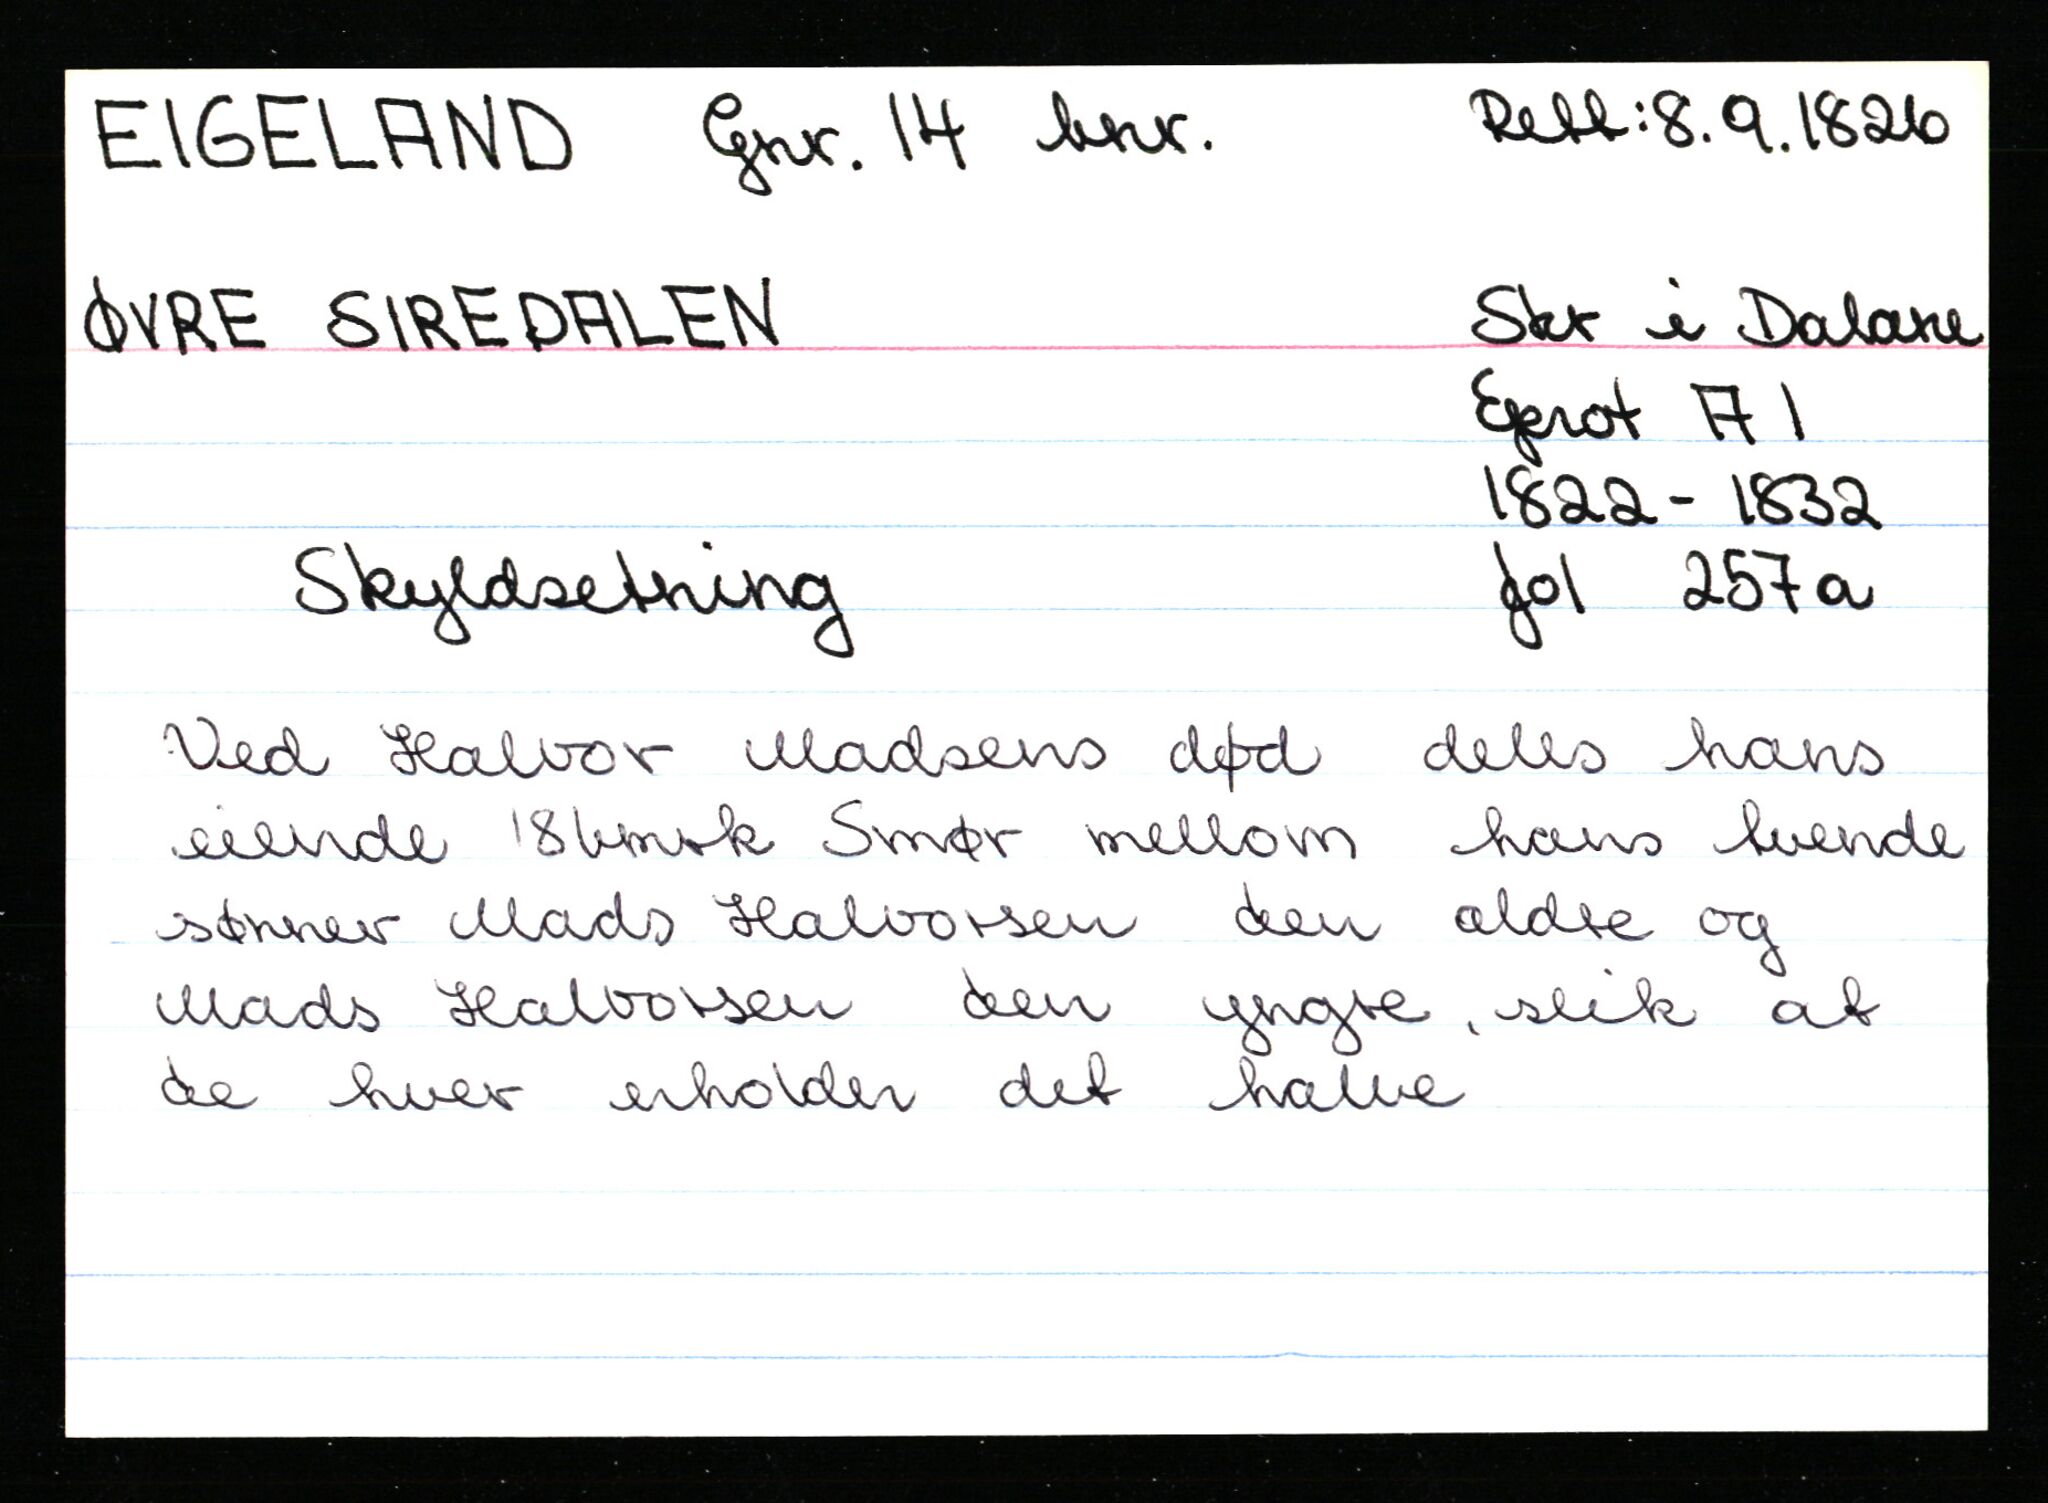 EIGELAND Gnr. 14 bnr. Rett: 8.9.1826
ØVRE SIREDALEN Skr i Dalane
Eprot A 1
1822 - 1832
Skyldsetning fol 257a
Ved Halvor Madsens død deles hans
eiende 18bmrk Smør mellom hans tvende
sønner Mads Halvorsen den eldre og
Mads Halvorsen den yngre, slik at
de hver erholder det halve